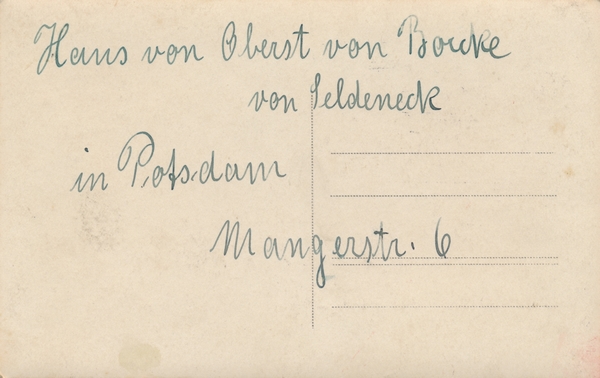 Haus von Oberst von Borcke
von Seldeneck
in Potsdam
Mangerstr. 6